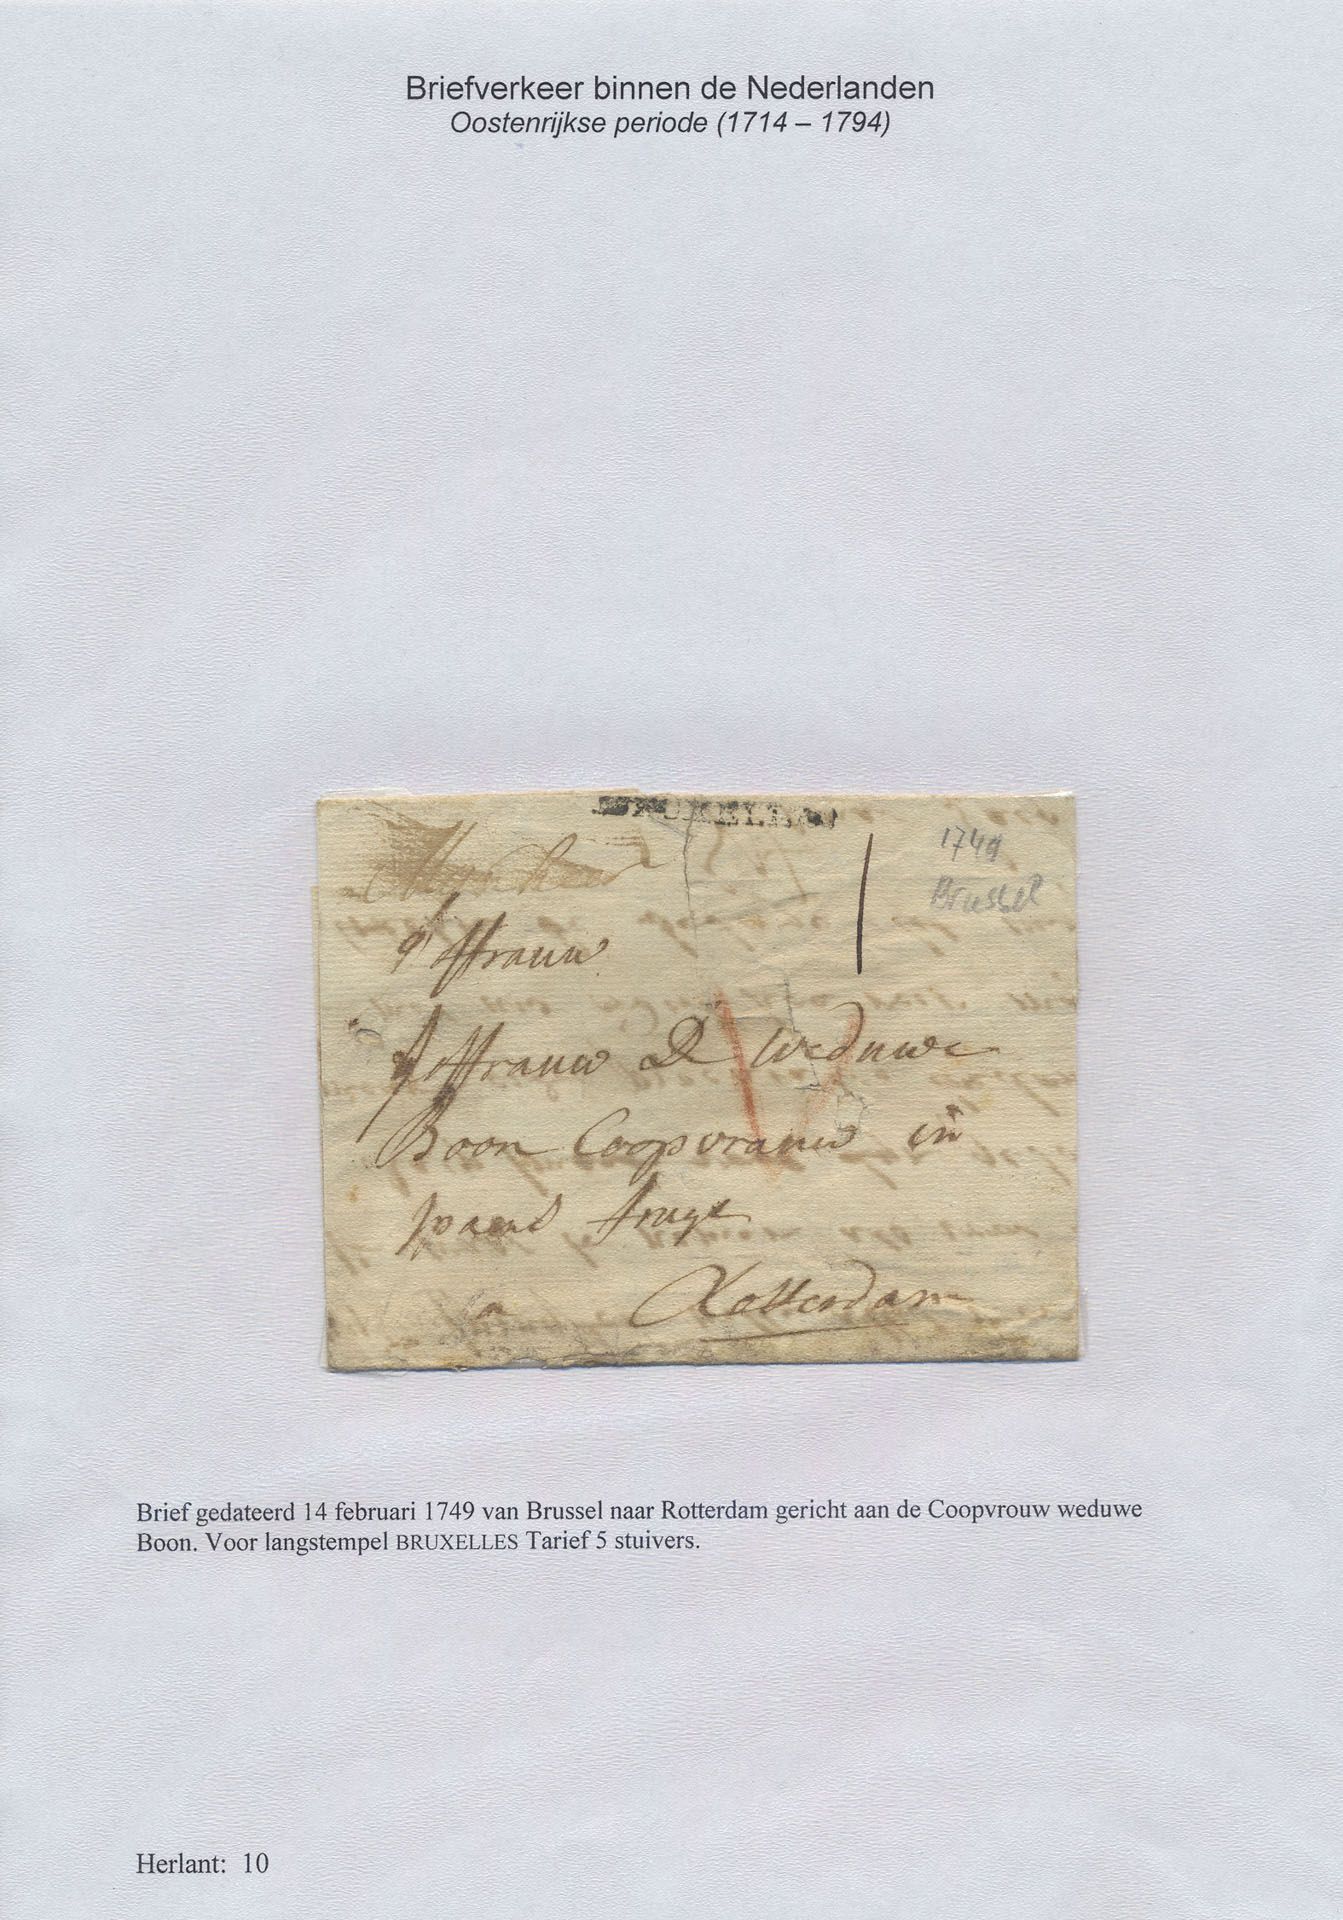 Briefverkeer binnen de Nederlanden
Oostenrijkse periode (1714 – 1794)
BRUXELLES
1749
Brussel
Joffrauw
Joffrauw De weduwe
Boon Coopvrauw in
spaens
Rotterdam
Brief gedateerd 14 februari 1749 van Brussel naar Rotterdam gericht aan de Coopvrouw weduwe
Boon. Voor langstempel BRUXELLES Tarief 5 stuivers.
Herlant: 10